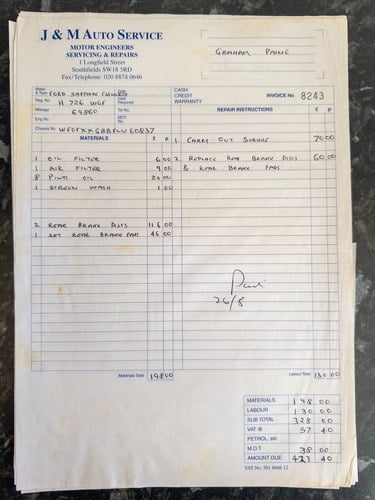 J & M AUTO SERVICE
MOTOR ENGINEERS
SERVICING & REPAIRS
1 Longfield Street
Southfields SW18 5RD
Fax/Telephone: 020 8874 0646
GRAHAM PAINE
FORD SAPPHIRE COSWORTH
Reg. No. H 726 WGF
Mileage 69860
Tel No.
Eng No.
MOT
Chassis No.
CASH
CREDIT
WARRANTY
INVOICE No 8243
MATERIALS £ p
REPAIR INSTRUCTIONS £ p
1 OIL FILTER 6 00
1 AIR FILTER 9 00
8 PINTS OIL 20 00
1 SCREEN WASH 1 00
2 REAR BRAKE DISCS 116 00
1 SET REAR BRAKE PADS 46 00
1. CARRY OUT SERVICE 70 00
2. REPLACE REAR BRAKE DISCS 60 00
& REAR BRAKE PADS
Paid
26/8
Materials Total 198 00
Labour Total 130 00
MATERIALS 198 00
LABOUR 130 00
SUB TOTAL 328 00
VAT @ 57 40
PETROL, etc
M.O.T 38 00
AMOUNT DUE 423 40
VAT No. 561 8066 12